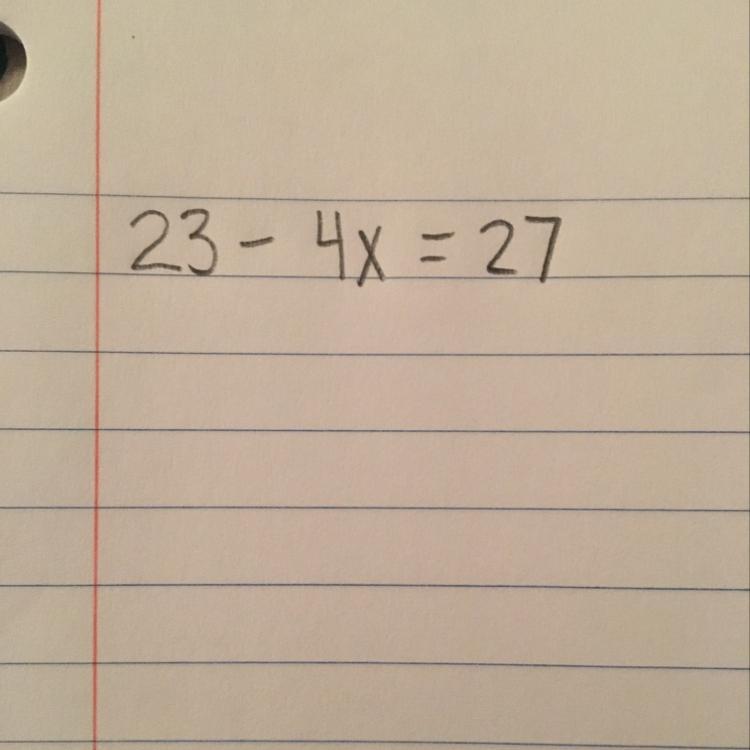 23 - 4x = 27